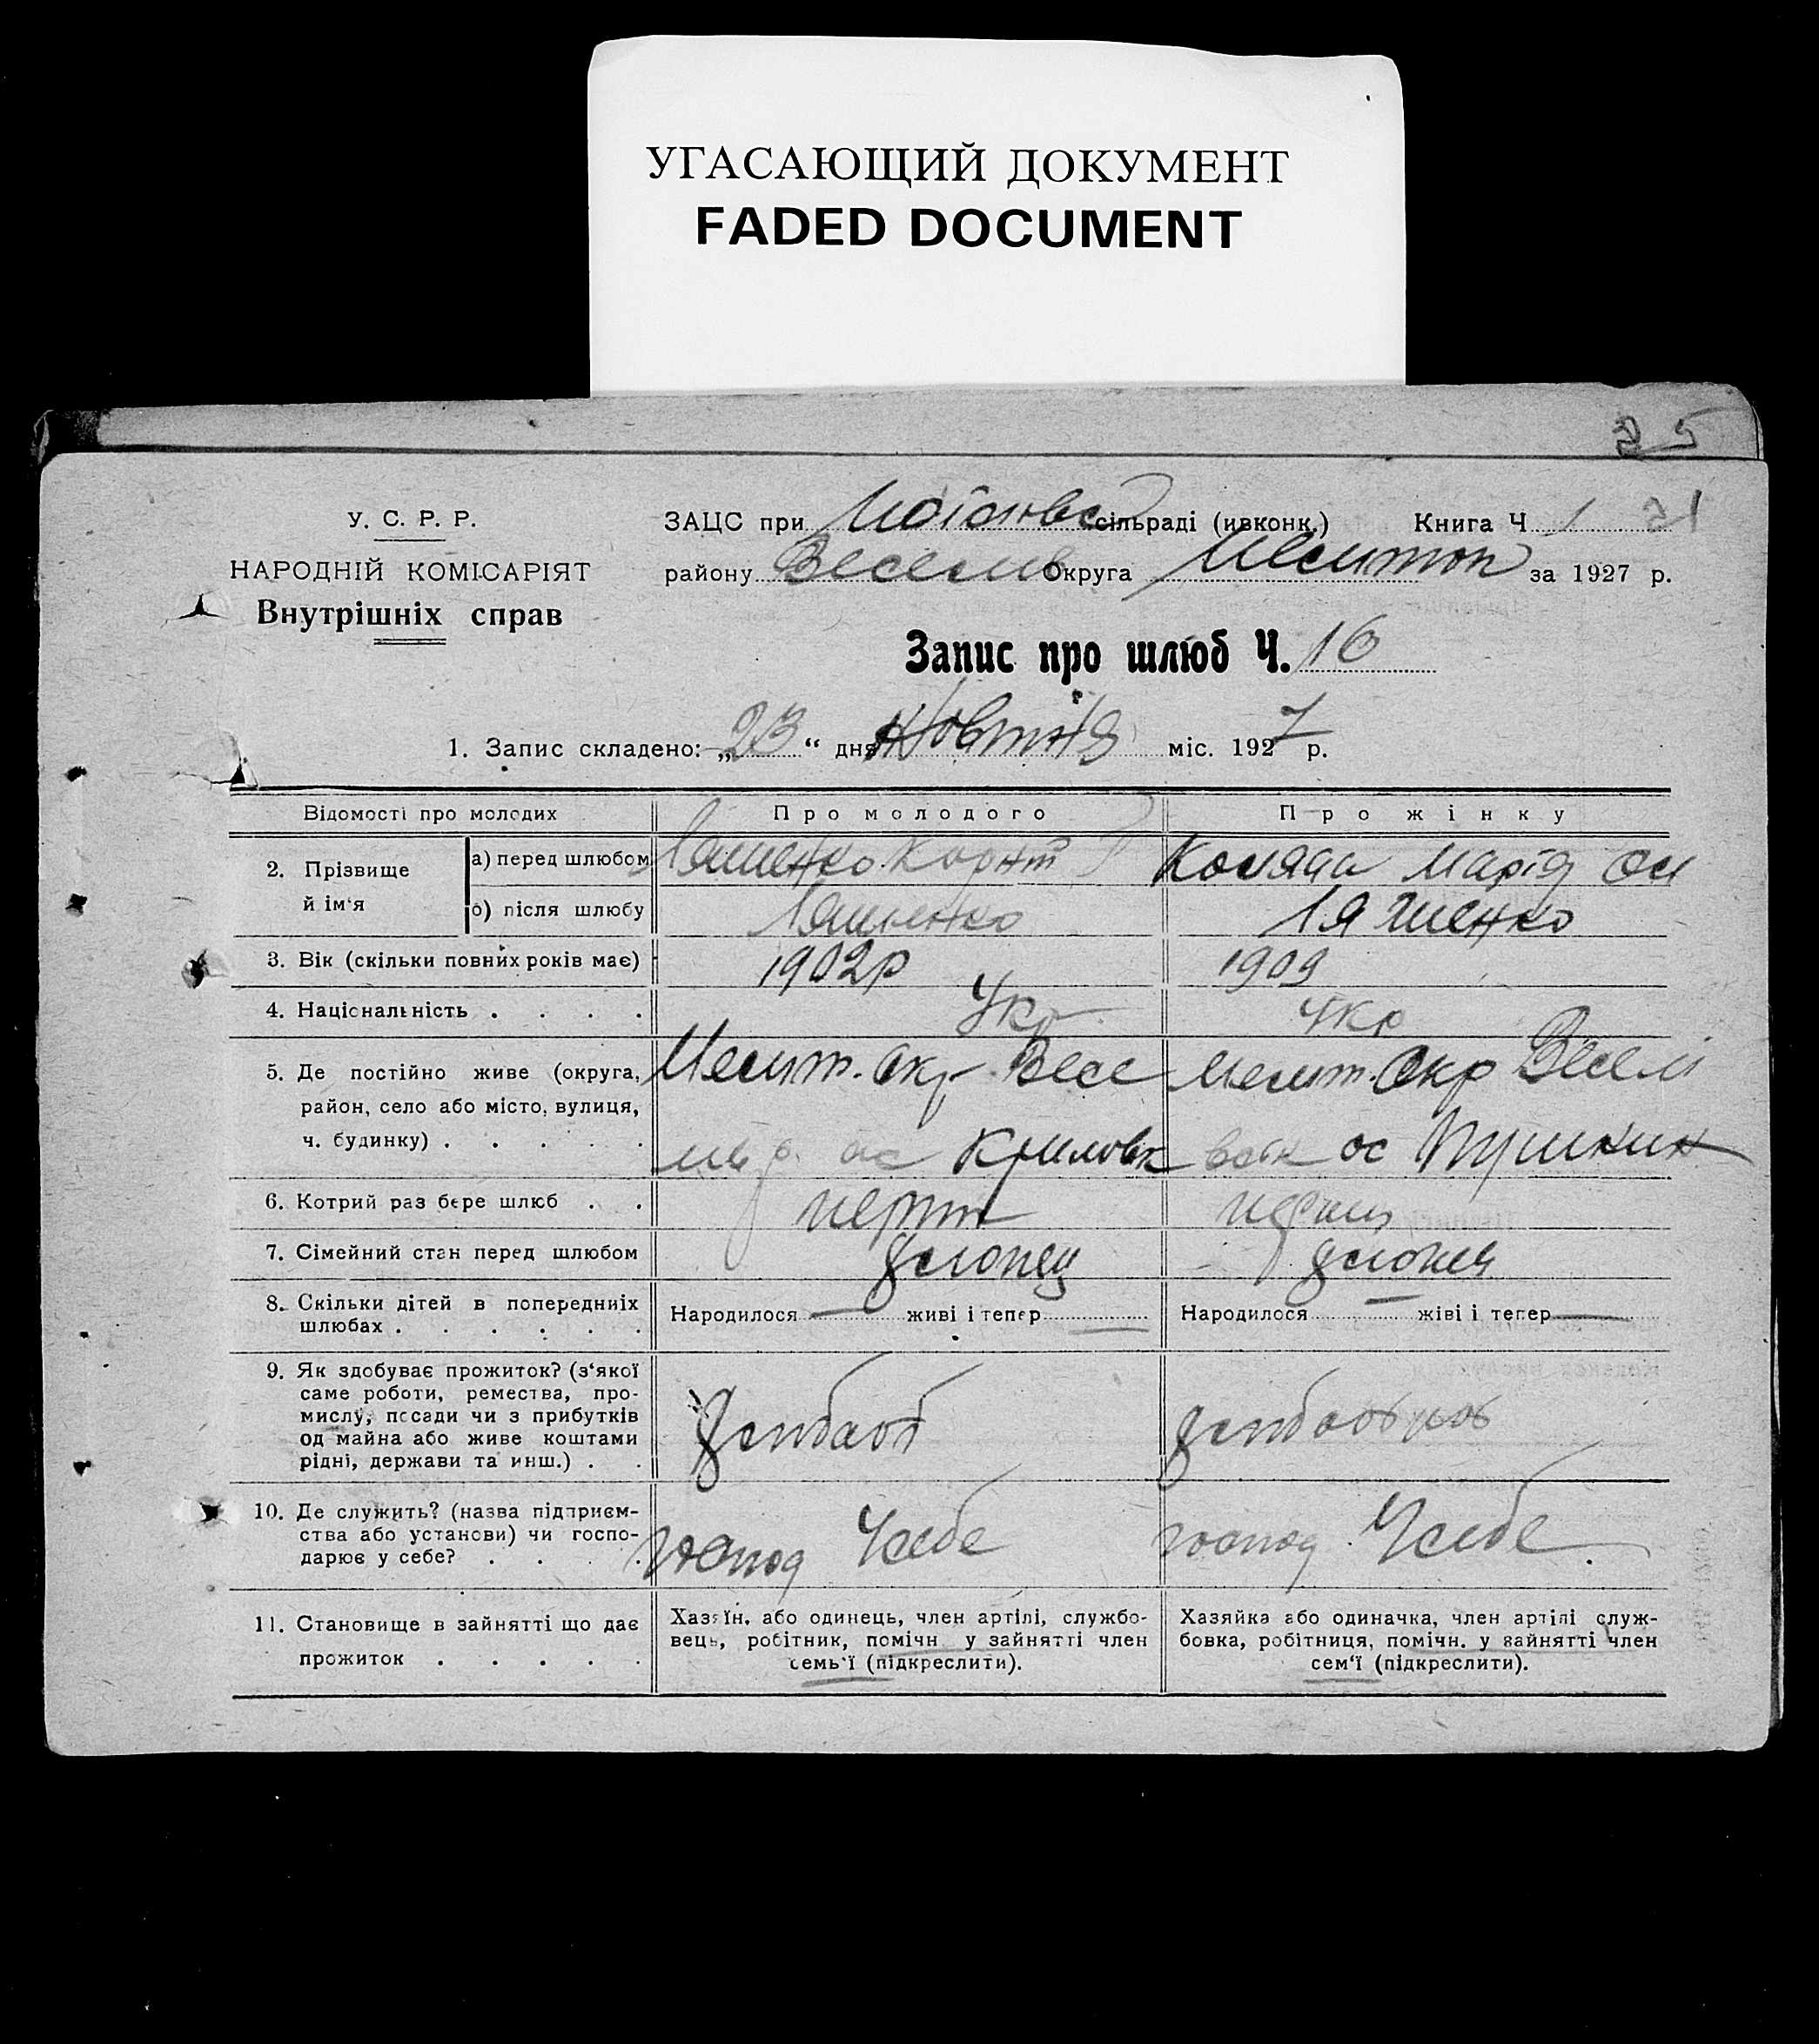 УГАСАЮЩИЙ ДОКУМЕНТ
FADED DOCUMENT
25
У. С. Р. Р.
НАРОДНІЙ КОМІСАРІЯТ
Внутрішніх справ
ЗАЦС при сільраді (ивконк.) Книга Ч 1 21
району Веселив Округа Мелитоп за 1927 р.
Запис про шлюб Ч. 16
1. Запис складено: „23“ дня Жовтня міс. 1927 р.
Відомості про молодих Про молодого Про жінку
2. Прізвище й ім‘я
а) перед шлюбом Ляшенко Марія
б) після шлюбу Ляшенко Ляшенко
3. Вік (скільки повних років має) 1902р 1909
4. Національність . . . . Укр Укр
5. Де постійно живе (округа, Мелит. окр. Весе Мелит. Окр Веселі
район, село або місто, вулиця,
ч. будинку) . . . . . ос Криловк ос Пушкин
6. Котрий раз бере шлюб . . перши
7. Сімейний стан перед шлюбом
8. Скільки дітей в попередниіх Народилося — живі і тепер — Народилося — жіві і тепер —
шлюбах . . . . . .
9. Як здобуває прожиток? (з‘якої
саме роботи, ремества, про-
мислу, посади чи з прибутків
од майна або живе коштами
рідні, держави та инш.) . .
10. Де служить? (назва підприєм-
ства або установи) чи госпо- господ Усебе господ Усебе
дарює у себе? . . . .
11. Становище в зайнятті що дає
прожиток . . . . .
Хазяїн, або одинець, член артілі, службо-
вець, робітник, помічн у зайнятті член
семь‘ї (підкреслити).
Хазяйка або одиначка, член артілі служ-
бовка, робітниця, помічн. у зайнятті член
сем‘ї (підкреслити).